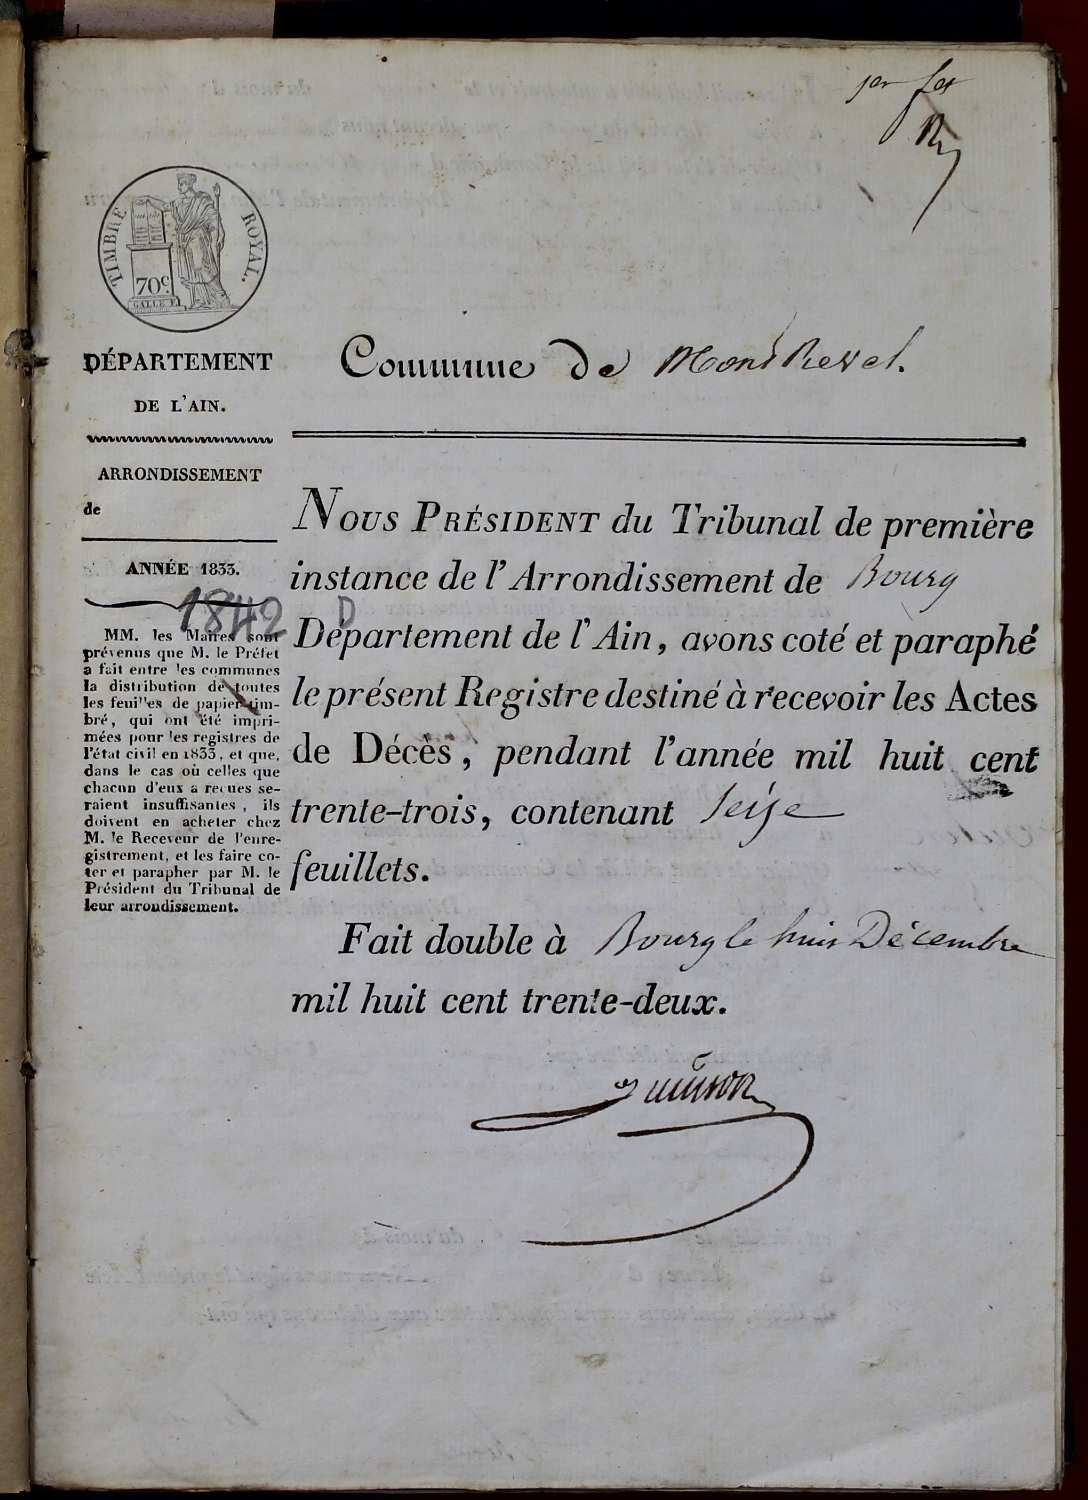 per fet
TIMBRE ROYAL.
70c
GALLE F.
DÉPARTEMENT
DE L'AIN.
ARRONDISSEMENT
de
ANNÉE 1833.
1842 D
MM. les Maires sont
prévenus que M. le Préfet
a fait entre les communes
la distribution de toutes
les feuilles de papier tim-
bré, qui ont été impri-
mées pour les registres de
l'état civil en 1833, et que,
dans le cas où celles que
chacun d'eux a reçues se-
raient insuffisantes, ils
doivent en acheter chez
M. le Receveur de l'enre-
gistrement, et les faire co-
ter et parapher par M. le
Président du Tribunal de
leur arrondissement.
Commune de MontRevel.
NOUS PRÉSIDENT du Tribunal de première
instance de l'Arrondissement de Bourg
Département de l'Ain, avons coté et paraphé
le présent Registre destiné à recevoir les Actes
de Décès, pendant l'année mil huit cent
trente-trois, contenant seize
feuillets.
Fait double à Bourg le huit Décembre
mil huit cent trente-deux.